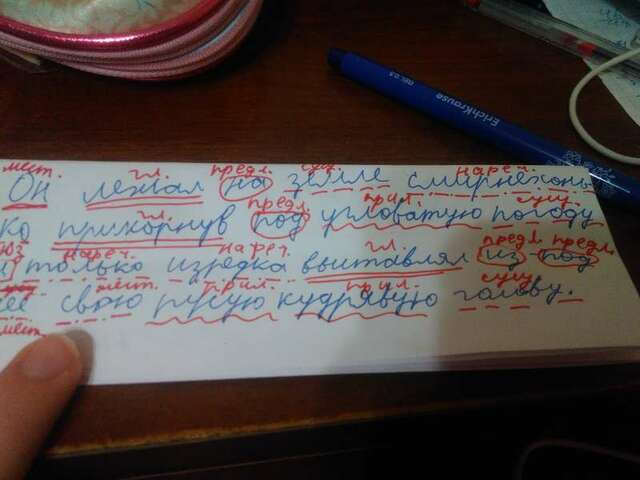 мест. гл. предл. сущ. нареч.
Он лежал на земле смирнёхонь
гл. предл. прил. сущ.
ко прикорнув под угловатую погоду
нареч. нареч. гл. предл. предл.
и только изредка выставлял из-под
мест. прил. прил. сущ.
её свою русую кудрявую голову.
мест.
ErichKrause